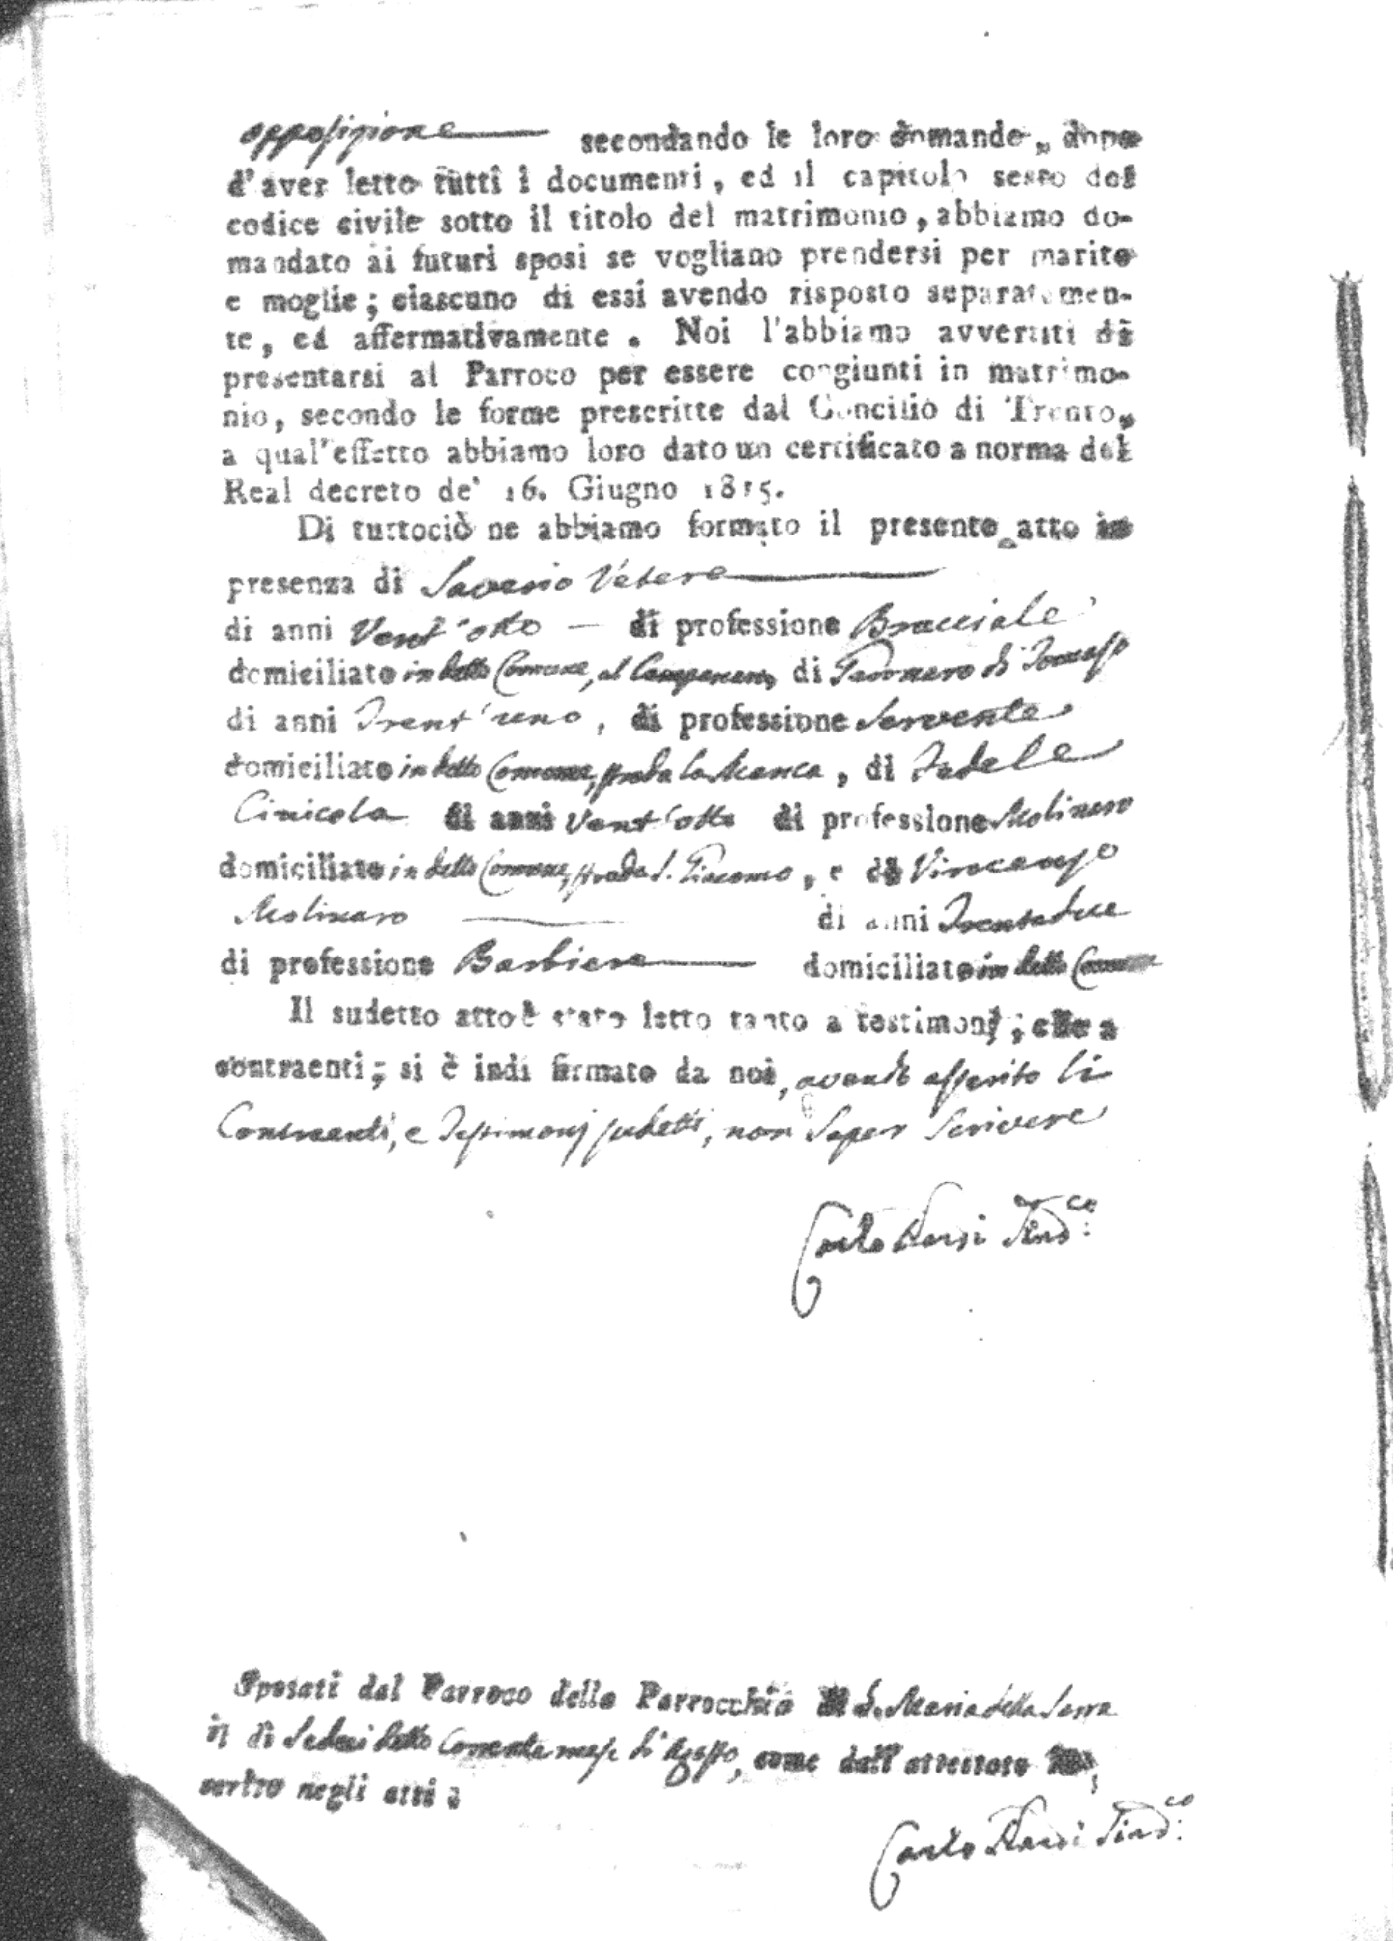 opposizione secondando le loro domande, dopo
d'aver letto tutti i documenti, ed il capitolo sesto del
codice civile sotto il titolo del matrimonio, abbiamo do-
mandato ai futuri sposi se vogliano prendersi per marito
e moglie; ciascuno di essi avendo risposto separatamen-
te, ed affermativamente. Noi l'abbiamo avvertiti di
presentarsi al Parroco per essere congiunti in matrimo-
nio, secondo le forme prescritte dal Concilio di Trento,
a qual'effetto abbiamo loro dato un certificato a norma del
Real decreto de' 16. Giugno 1815.
Di tuttociò ne abbiamo formato il presente atto in
presenza di Saverio Vetere
di anni Vent'otto di professione Bracciale
domiciliato in detto Comune, al di Gennaro di Tomaso
di anni Trent'uno, di professione Servente
domiciliato in detto Comune, strada la Manca, di Fedele
Cinicola di anni Vent'otto di professione Molinaro
domiciliato in detto Comune, strada S. Giacomo, e di Vincenzo
Molinaro di anni Trentadue
di professione Barbiere domiciliato in detto Comune
Il sudetto atto è stato letto tanto a testimonj, che a
contraenti; si è indi firmato da noi, avendo asserito li
Contraenti, e Testimonj sudetti, non saper scrivere
Carlo Sind.co
Sposati dal Parroco della Parrocchia di S. Maria della Serra
il dì Sedeci detto Corrente mese d'Agosto, come dall'attestato
sertto negli atti
Carlo Sind.co